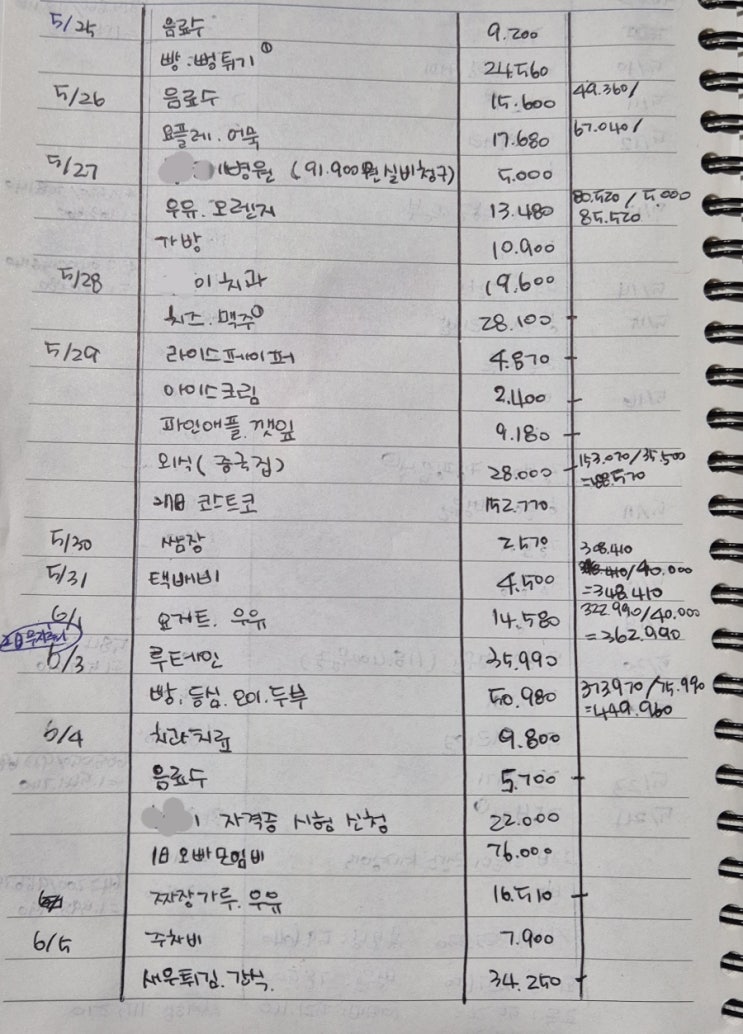 5/25 음료수 9.200
빵.뻥튀기① 24.560
5/26 음료수 15.600 49.360/
요플레.어묵 17.680 67.040/
5/27 병원 (91.900원 실비청구) 5.000
우유.오렌지 13.480 80.520/5.000
85.520
가방 10.900
5/28 이치과 19.600
치즈.맥주① 28.100
5/29 라이스페이퍼 4.870
아이스크림 2.400
파인애플.깻잎 9.180
외식(중국집) 28.000 153.070/35.500
=188.570
코스트코 152.770
5/30 쌈장 2.570 308.410
5/31 택배비 4.500 /40.000
=348.410
6/1 요거트.우유 14.580 322.990/40.000
=362.990
6/3 루테인 35.990
빵.등심.오이.두부 50.980 373.970/75.990
=449.960
6/4 치과치료 9.800
음료수 5.700
자격증 시험 신청 22.000
오빠모임비 76.000
짜장가루.우유 16.510
6/5 주차비 7.900
새우튀김.간식. 34.250